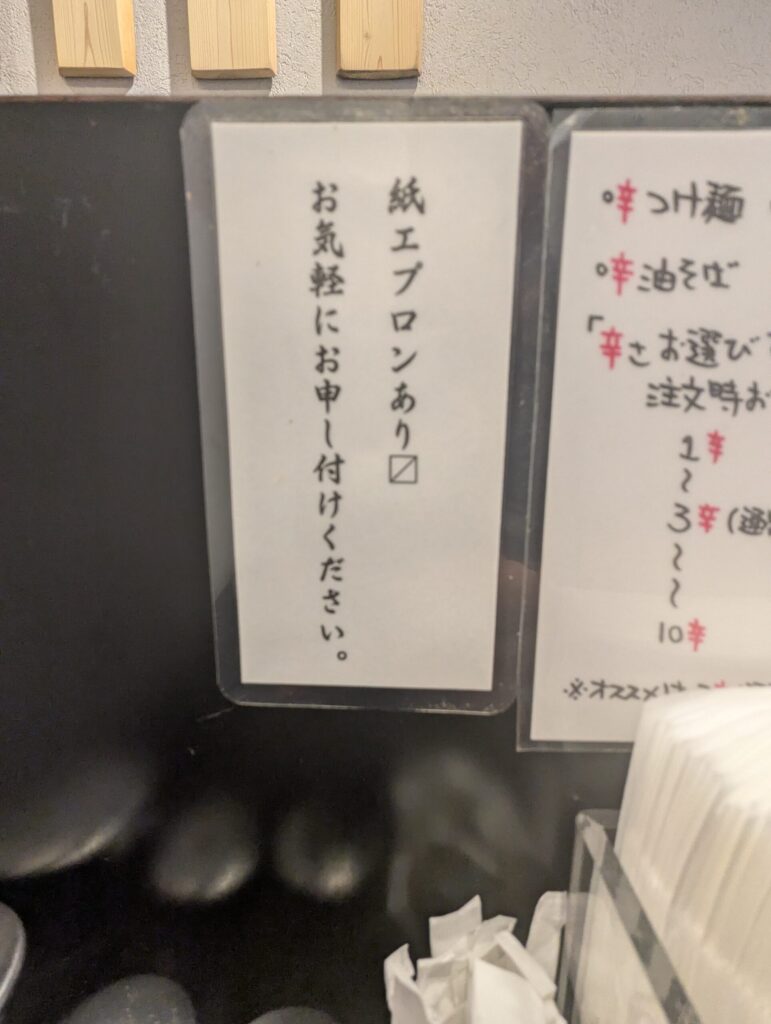 紙エプロンあり〼
お気軽にお申し付けください。
○辛つけ麺
○辛油そば
「辛さお選び
注文時お
1辛
〜
3辛(通
〜
〜
10辛
※オススメは